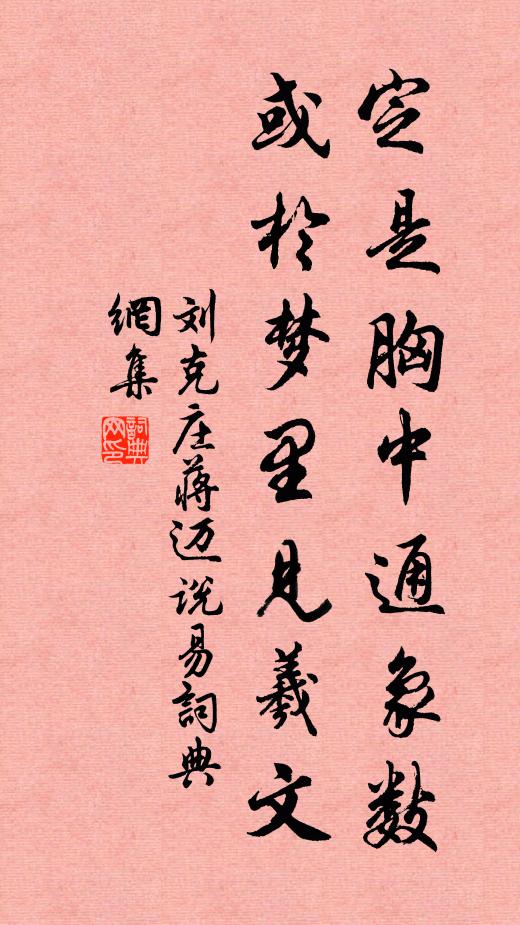 定是胸中通象数
或於梦里见羲文
刘克庄蒋迈说易詞典
網集
詞典
网印